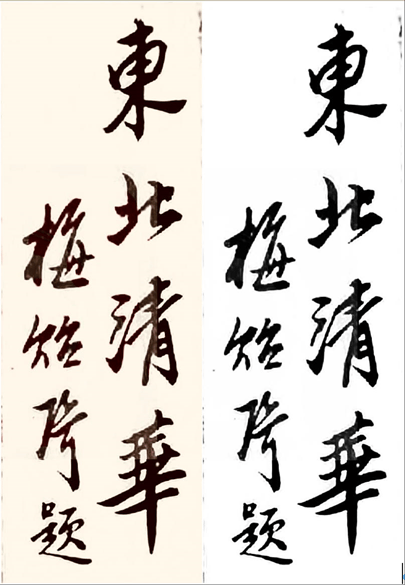 東北清華
梅貽琦題
東北清華
梅貽琦題